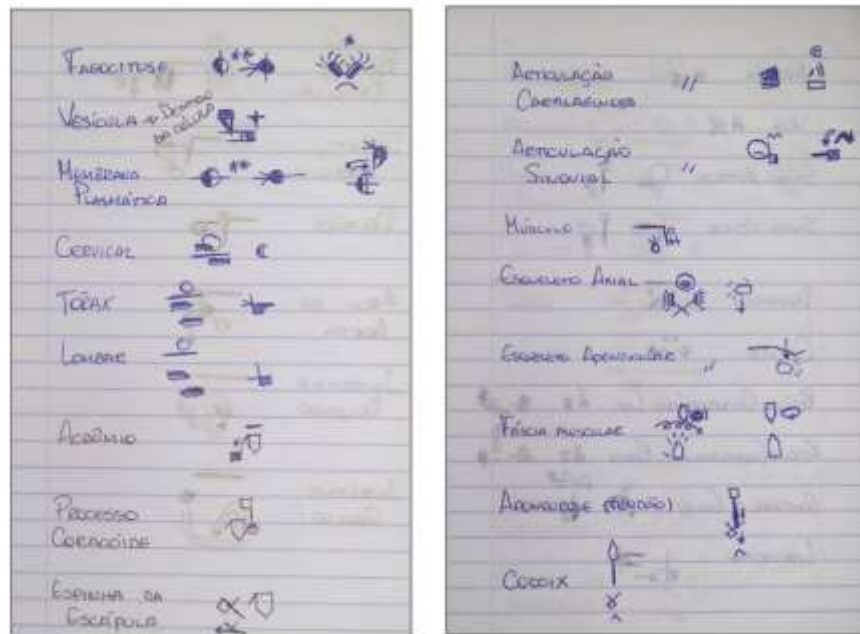 FAGOCITOSE
VESÍCULA → DENTRO
DA CÉLULA
MEMBRANA
PLASMÁTICA
CERVICAL
TÓRAX
LOMBAR
ACRÔMIO
PROCESSO
CORACÓIDE
ESPINHA DA
ESCÁPULA
ARTICULAÇÃO
CARTILAGINOSA "
ARTICULAÇÃO
SINOVIAL "
MÚSCULO
ESQUELETO AXIAL
ESQUELETO APENDICULAR "
FÁSCIA MUSCULAR
APONEUROSE (TENDÃO)
CÓCCIX